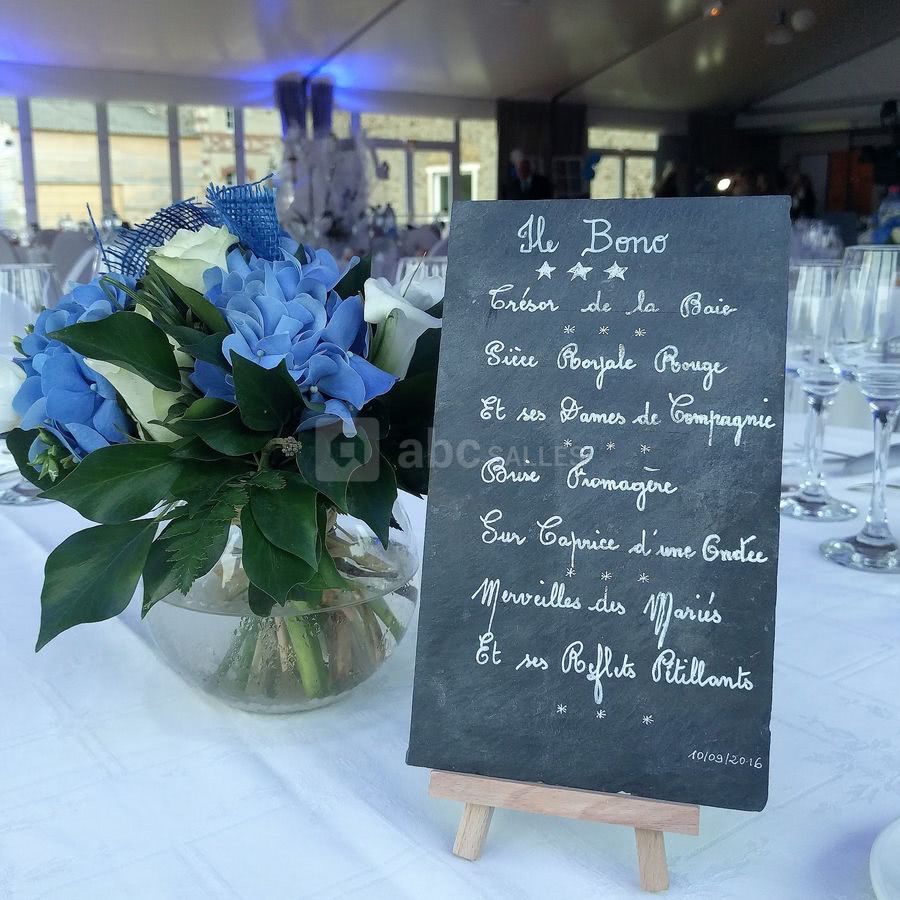 Ile Bono
Trésor de la Baie
Pièce Royale Rouge
Et ses Dames de Compagnie
abc SALLES
Brise Fromagère
Sur Caprice d'une Ondée
Merveilles des Mariés
Et ses Reflets Pétillants
10/09/2016